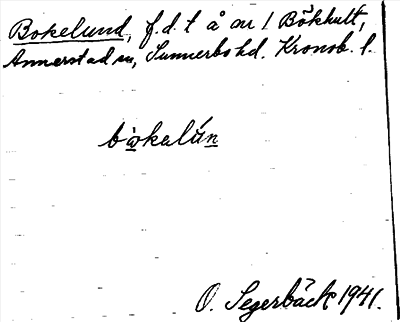 Bokelund, f.d. t å nr 1 Bökhult,
Annerstad sn, Sunnerbo hd. Kronob. l.
bòkalún
O. Segerbäck 1941.